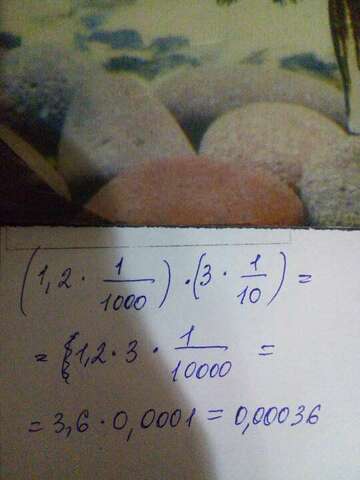 (1,2 · 1/1000) · (3 · 1/10) =
= 1,2 · 3 · 1/10000 =
= 3,6 · 0,0001 = 0,00036